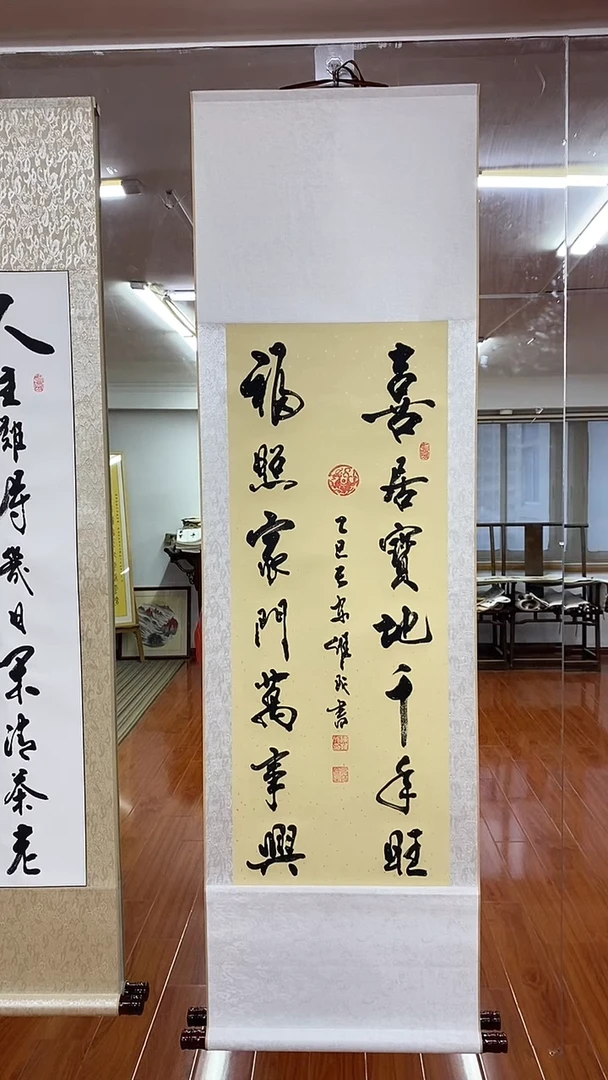 喜居寳地千年旺
福照家門萬事興
乙巳
書
人
主雖得幾日閑清茶老